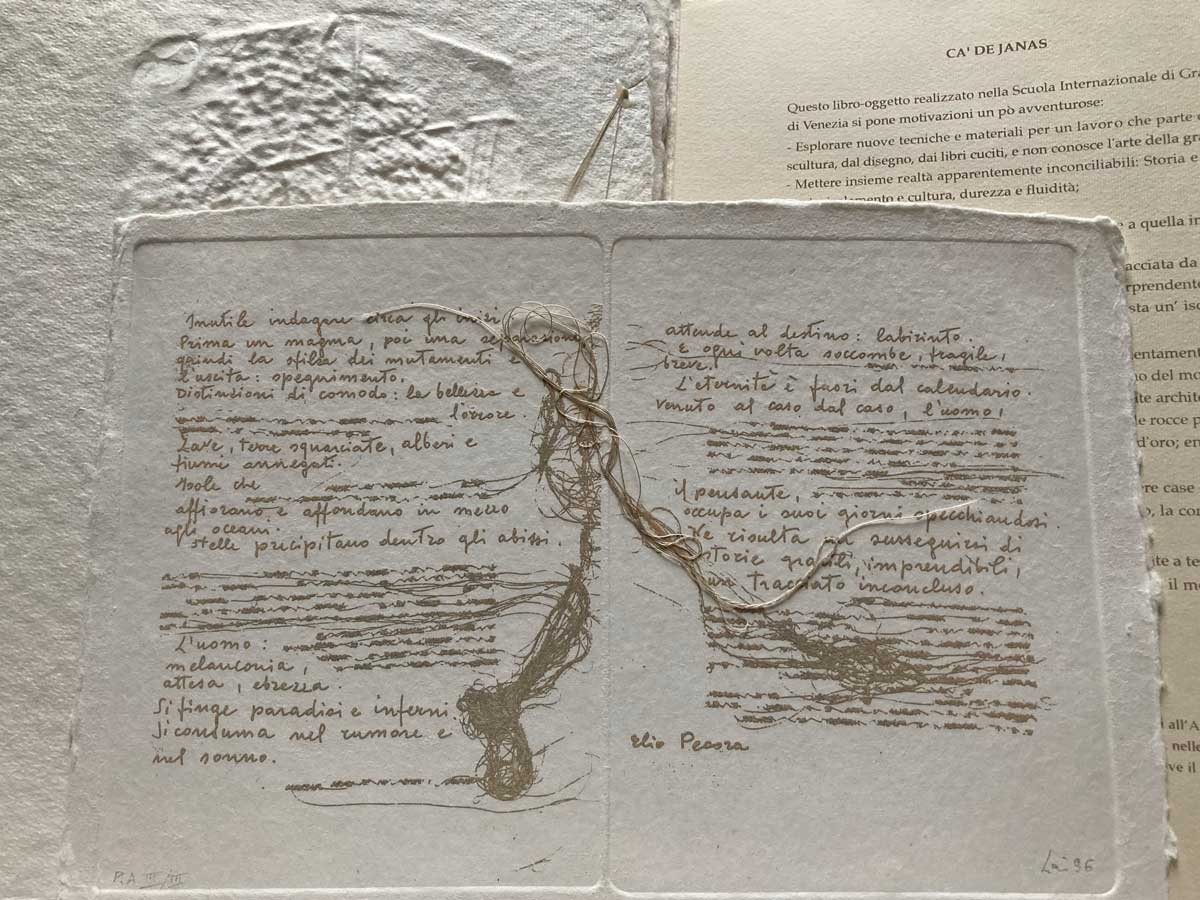 CA' DE JANAS
Questo libro-oggetto realizzato nella Scuola Internazionale di Gra
di Venezia si pone motivazioni un pò avventurose:
- Esplorare nuove tecniche e materiali per un lavoro che parte
scultura, dal disegno, dai libri cuciti, e non conosce l'arte della gra
- Mettere insieme realtà apparentemente inconciliabili: Storia e
e cultura, durezza e fluidità;
e a quella in
acciata da
rprendente
sta un' iso
entament
no del mo
ite archite
le rocce p
d'oro; en
re case
o, la con
ite a te
il mo
all'A
nelle
ve il
Inutile indagare circa gli inizi
Prima un magma, poi una separazione
quindi la sfilza dei mutamenti e
l'uscita: spegnimento.
Distinzioni di comodo: la bellezza e
l'orrore.
Lave, terre squarciate, alberi e
fiumi annegati.
Isole che
affiorano e affondano in mezzo
agli oceani.
Stelle precipitano dentro gli abissi.
L'uomo:
melanconia,
attesa, ebrezza.
Si finge paradisi e inferni.
Si consuma nel rumore e
nel sonno.
attende al destino: labirinto.
E ogni volta soccombe, fragile,
breve.
L'eternità è fuori dal calendario.
Venuto al caso dal caso, l'uomo,
il pensante,
occupa i suoi giorni specchiandosi.
Ne risulta un susseguirsi di
storie gracili, imprendibili,
un tracciato inconcluso.
Elio Pecora
P.A III/III
96